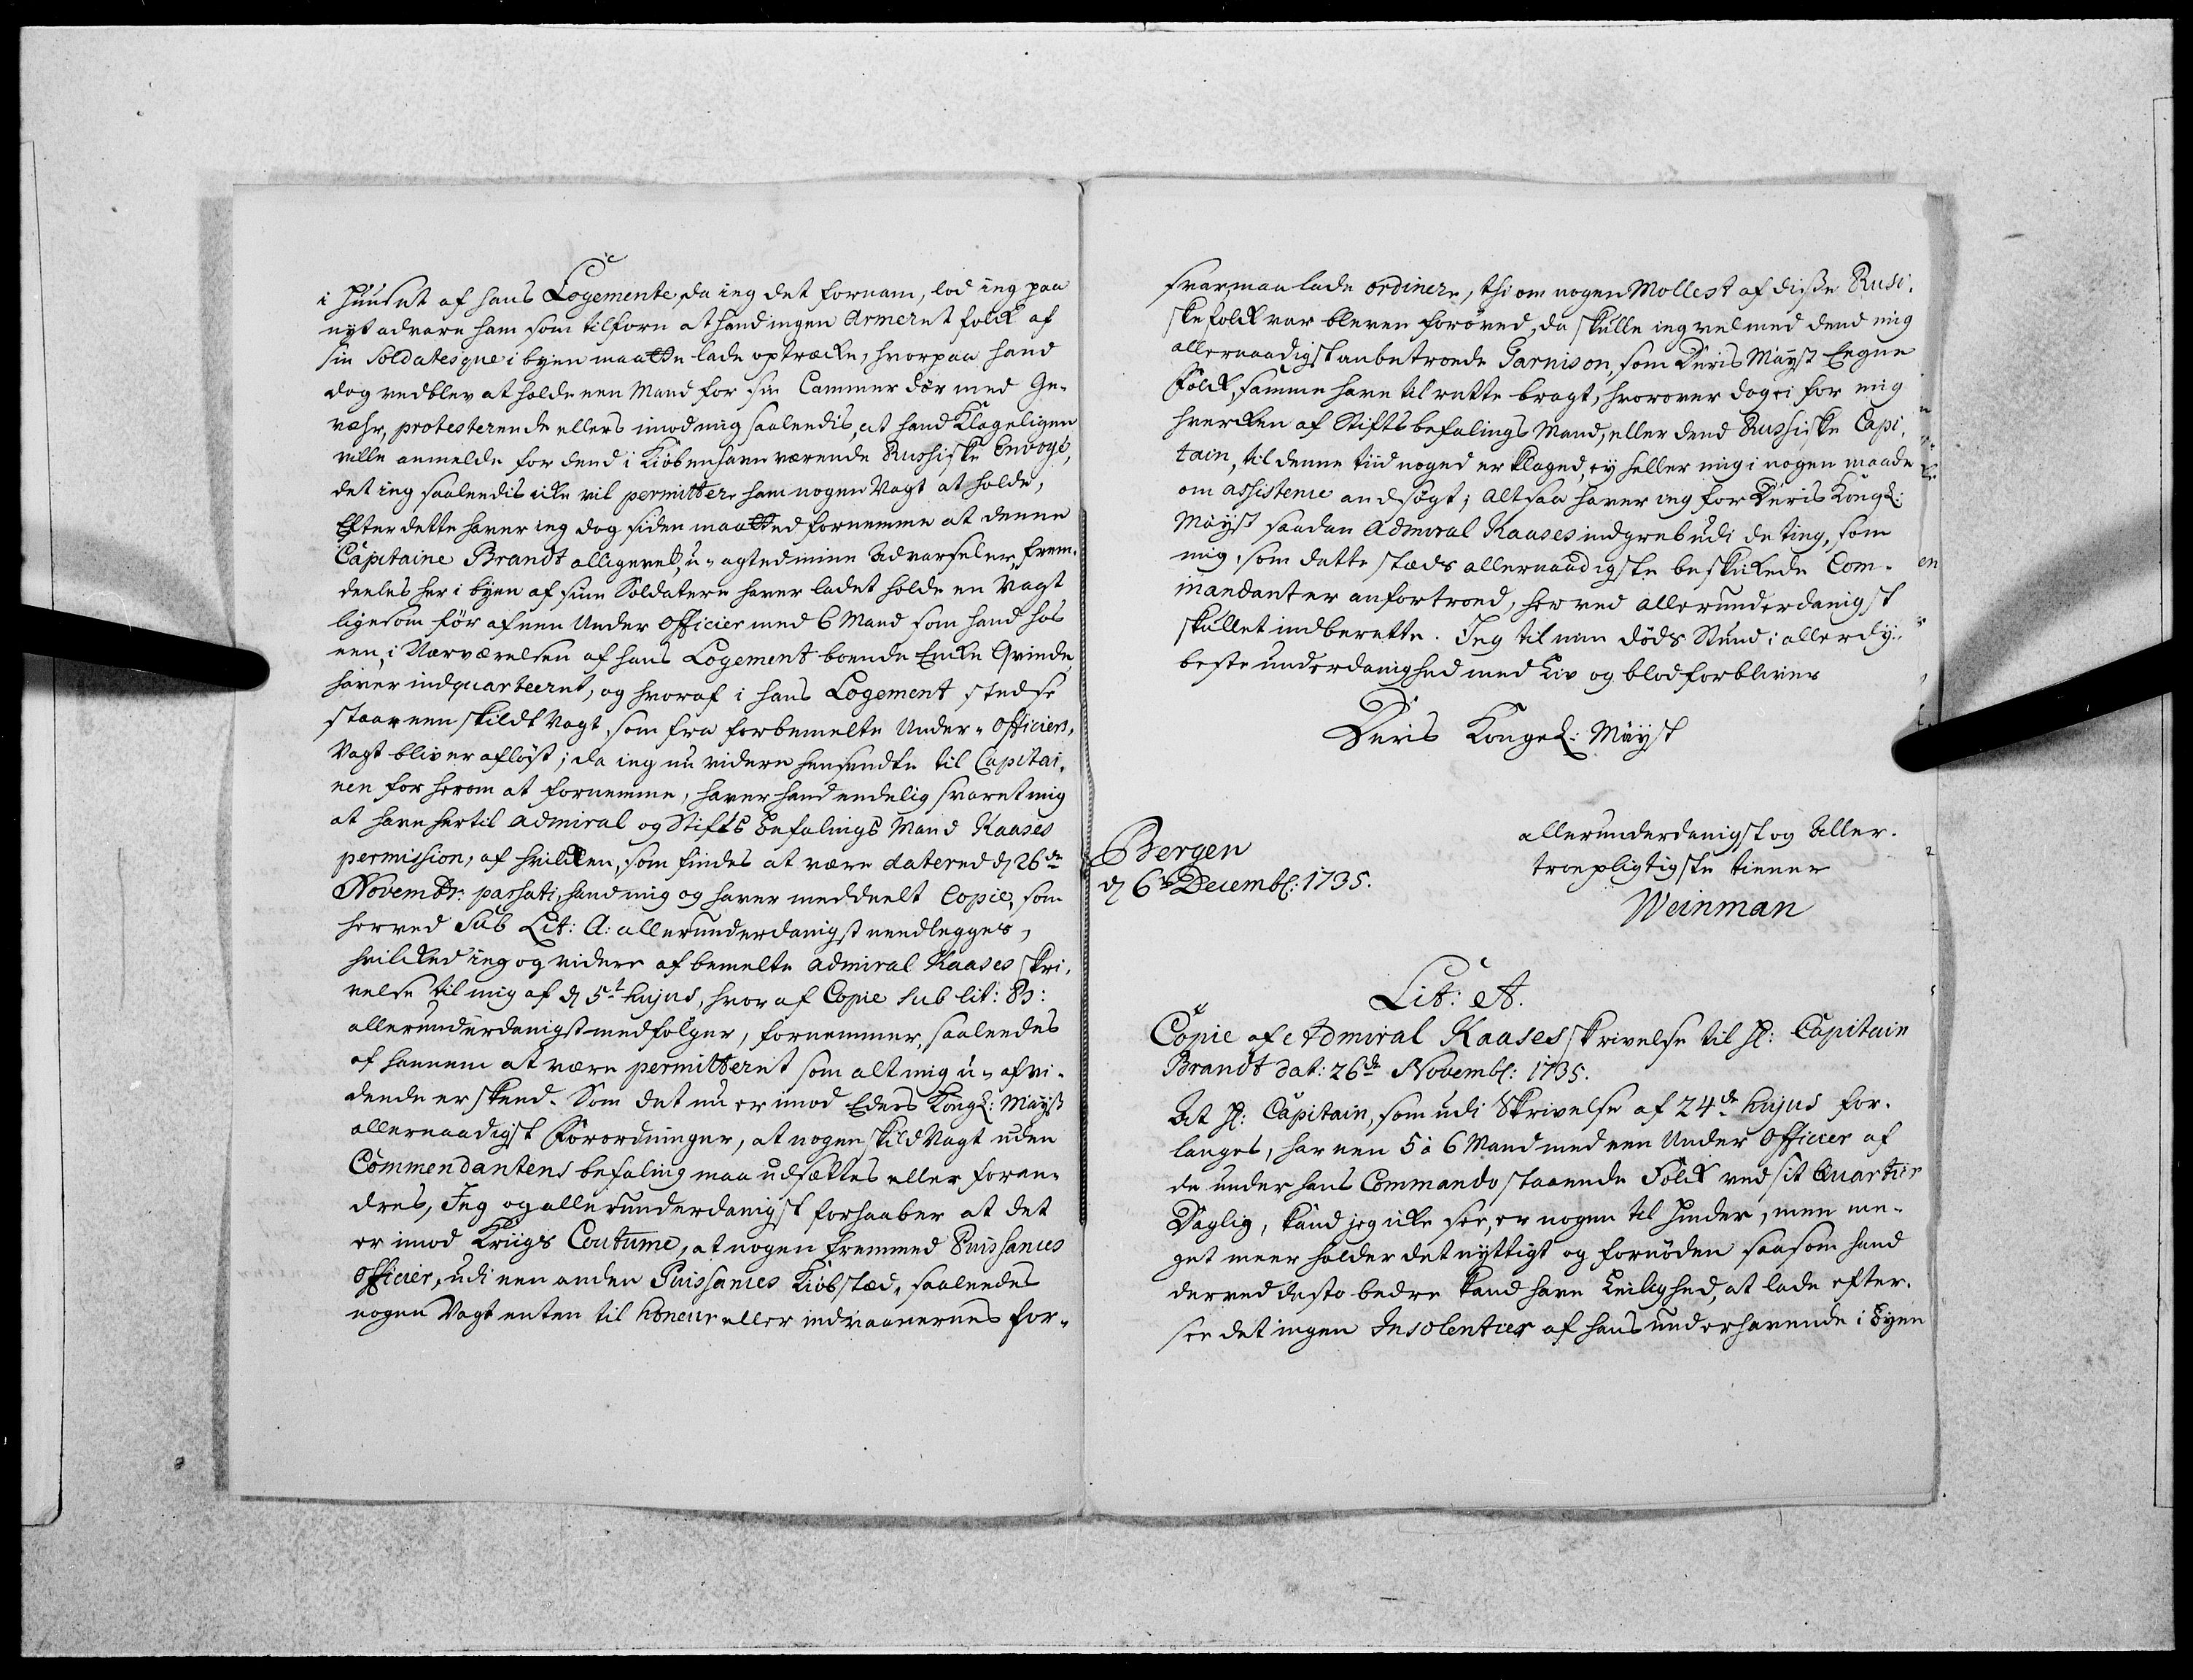 i Huuset af hans Logemente, da ieg det fornam, lod ieg paa
nyt advare ham som tilforn at hand ingen Armeret folck af
sin Soldatesque i byen maatte lade optræcke, hvorpaa hand
dog vedblev at holde een Mand for sin Cammer dør med Ge-
væhr, protesterende ellers imod mig saaledis, at hand Klageligen
ville anmelde for dend i Kiøbenhavn værende Russiske Envoyé,
det ieg saaledis icke vil permittere ham nogen Vagt at holde,
Efter dette haver ieg dog siden maatted fornemme at denne
Capitaine Brandt alligevel, u-agted mine Advarseler, frem-
deeles her i byen af sine Soldatere haver ladet holde en Vagt
ligesom før af een Under Officier med 6 Mand som hand hos
een, i Nærværelsen af hans Logement boende Encke Qvinde,
haver indquarteeret, og hvoraf i hans Logement stedse
staar een skildt Vagt, som fra forbemelte Under-Officiers,
Vagt bliver afløst; da ieg nu videre hensendte til Capitai-
nen for herom at fornemme, haver hand endelig svaret mig
at have hertil Admiral og Stifts Befalings Mand Kaases
permission, af hvilcken, som findes at være datered d 26de
Novembr: passati, hand mig og haver meddeelt Copie, som
herved Sub Lit: A: allerunderdanigst needlegges,
hvilcked ieg og videre af bemelte Admiral Kaases skri-
velse til mig af d 5t hujus, hvor af Copie sub lit: B:
allerunderdanigst medfølger, fornemmer, saaleedes
af hannem at være permitteret som alt mig u-afvi-
dende er skeed. Som det nu er imod Eders Kongl: Mayst
allernaadigst Forordninger, at nogen skild Vagt uden
Commendantens befaling maa udsættes eller foran-
dres, Jeg og allerunderdanigst forhaaber at det
er imod Kriigs Coutume, at nogen fremmed Puissances
Officier, udi een anden Puissances Kiøbstæd, saaleedes
nogen Vagt enten til honeur eller indvaanernes for-
svar, maa lade ordinere, thi om nogen Mollest af disse Russi-
ske folck var bleven forøved, da skulle ieg vel med dend mig
allernaadigst anbetroede Garnison, som Deris Mayst Eegne
Folck, samme have til rette bragt, hvorover dog ei for mig
hvercken af Stiftsbefalings Mand, eller dend Russiske Capi-
tain, til denne tiid noged er klaged, ey heller mig i nogen maade
om assistence andsøgt; altsaa haver ieg for Deris Kongl:
Mayst saadan Admiral Kaases indgreb udi de ting, som
mig, som dette stæds allernaadigste beskickede Com-
mandant er anfortroed, herved allerunderdanigst
skullet indberette. Jeg til min døds Stund i allerdy-
beste underdanighed med Liv og blod forbliver
Deris Kongel: Mayst
allerunderdanigst og Aller-
troepligtigste tiener
Bergen
d 6te Decembr: 1735.
Weinman
Lit: A.
Copie af Admiral Kaases skrivelse til Hr: Capitain
Brandt dat: 26de Novembr: 1735.
At Hr: Capitain, som udi Skrivelse af 24de hujus for-
langes, har een 5 à 6 Mand med een Under Officier af
de under hans Commando staaende Folck ved sit Quartier
Daglig, kand jeg icke see, er nogen til Hinder, men me-
get meer holder det nyttigt og fornøden saasom hand
derved desto bedre kand have Leilighed, at lade efter-
see det ingen Insolentier af hans underhavende i Byen